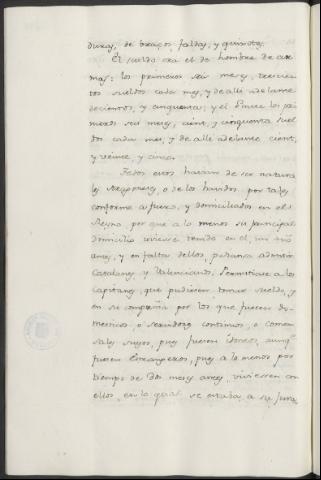 duras, de braços, faldas, y quixotes.
El sueldo era el de hombre de ar-
mas: los primeros seis meses, trescien-
tos sueldos cada mes, y de alli adelante
decientos, y cinquenta; y el Pillart los pri-
meros seis meses, cient, y cinquenta suel-
dos cada mes; y de alli adelante cient,
y veinte y cinco.
Todos estos havian de ser natura-
les Aragoneses, o de los havidos por tales,
conforme a fuero, y domiciliados en el
Reyno, por que a lo menos su principal
domicilio uviesse tenido en el, un año
antes, y en falta dellos, pudiessen admitir
Catalanes, y Valencianos. Permitiase a los
Capitanes, que pudiessen tomar sueldo, y
en su compañia por los que fuessen do-
mesticos, o servidores continuos, o comen-
sales suyos, pues fuessen idoneos, aunq̃
fuessen Estrangeros, pues a lo menos por
tiempo de dos meses antes, viviessen con
ellos, en lo qual se estava, a su jura-